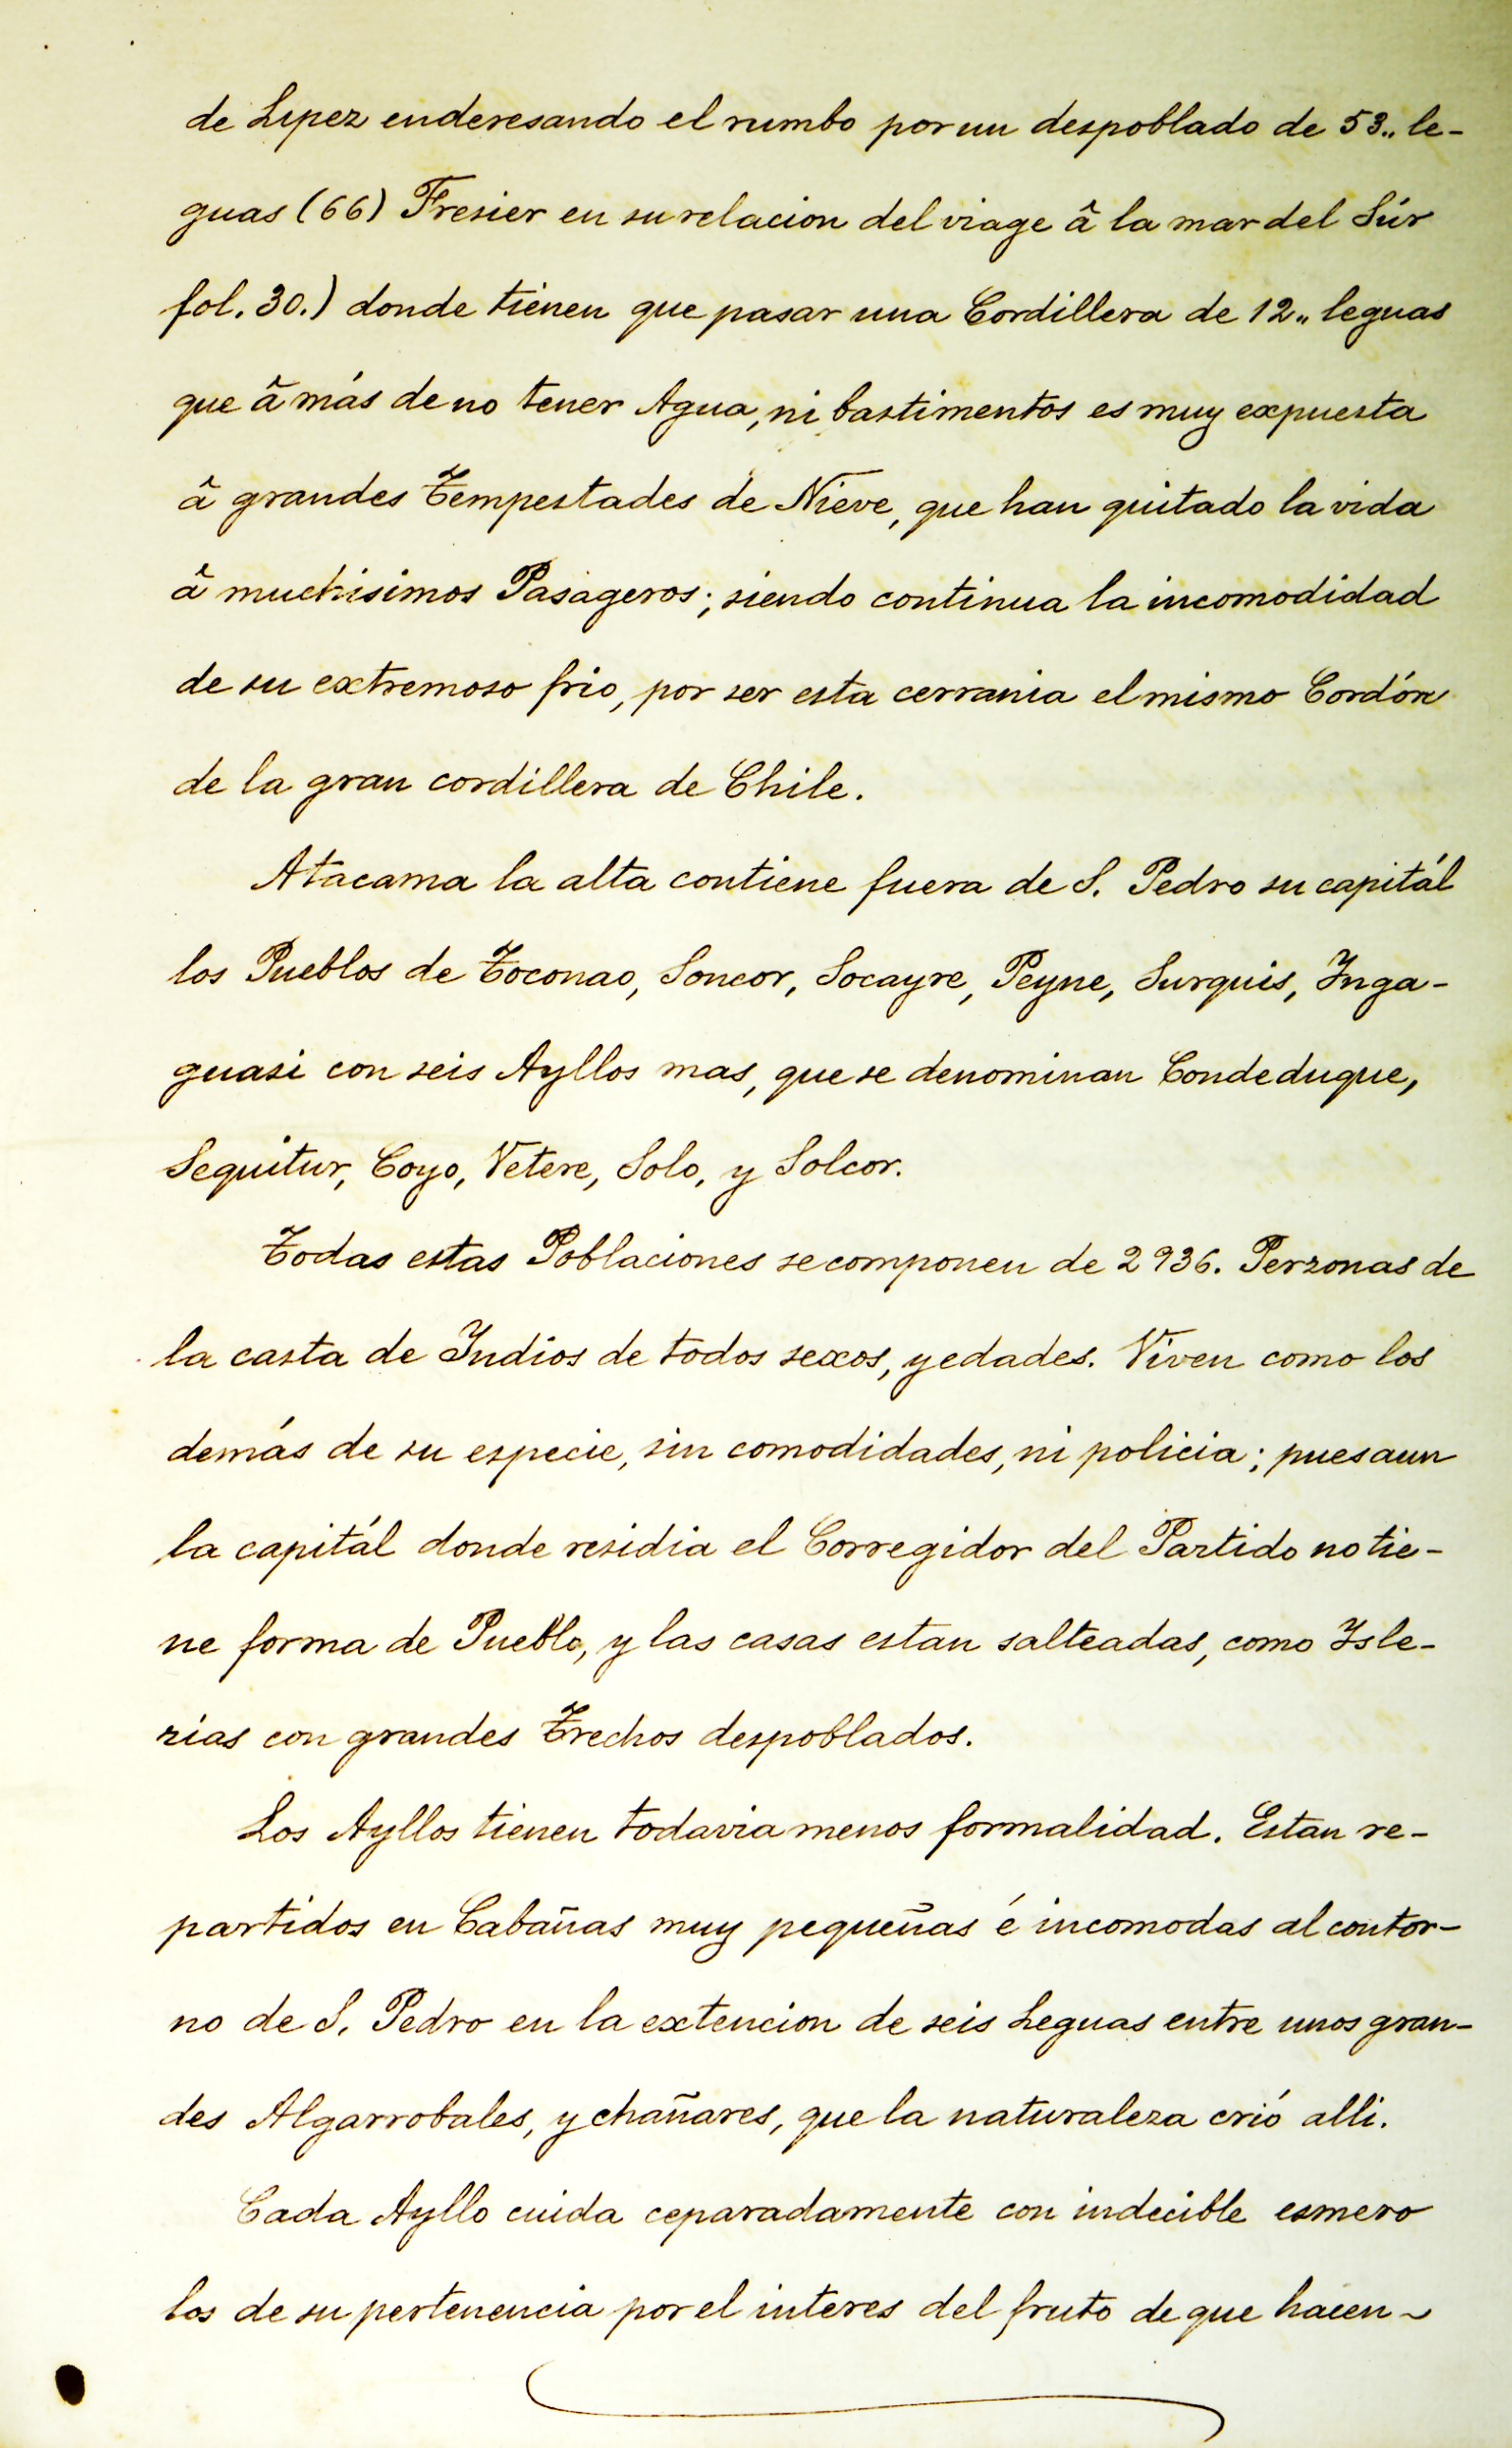 de Lipez enderesando el rumbo por un despoblado de 53.. le-
guas (66) Fresier en su relacion del viage â la mar del Súr
fol. 30.) donde tienen que pasar una Cordillera de 12.. leguas
que â más de no tener Agua, ni bastimentos es muy expuesta
â grandes Tempestades de Nieve, que han quitado la vida
â muchisimos Pasageros; siendo continua la incomodidad
de su extremoso frio, por ser esta cerrania el mismo Cordón
de la gran cordillera de Chile.
Atacama la alta contiene fuera de S. Pedro su capitál
los Pueblos de Toconao, Soncor, Socayre, Peyne, Surquis, Inga-
guasi con seis Ayllos mas, que se denominan Condeduque,
Sequitur, Coyo, Vetere, Solo, y Solcor.
Todas estas Poblaciones se componen de 2936. Perzonas de
la casta de Indios de todos sexos, y edades. Viven como los
demás de su especie, sin comodidades, ni policia; pues aun
la capitál donde residia el Corregidor del Partido no tie-
ne forma de Pueblo, y las casas estan salteadas, como Isle-
rias con grandes Trechos despoblados.
Los Ayllos tienen todavia menos formalidad. Estan re-
partidos en Cabañas muy pequeñas é incomodas al contor-
no de S. Pedro en la extencion de seis Leguas entre unos gran-
des Algarrobales, y chañares, que la naturaleza crió alli.
Cada Ayllo cuida ceparadamente con indecible esmero
los de su pertenencia por el interes del fruto de que hacen